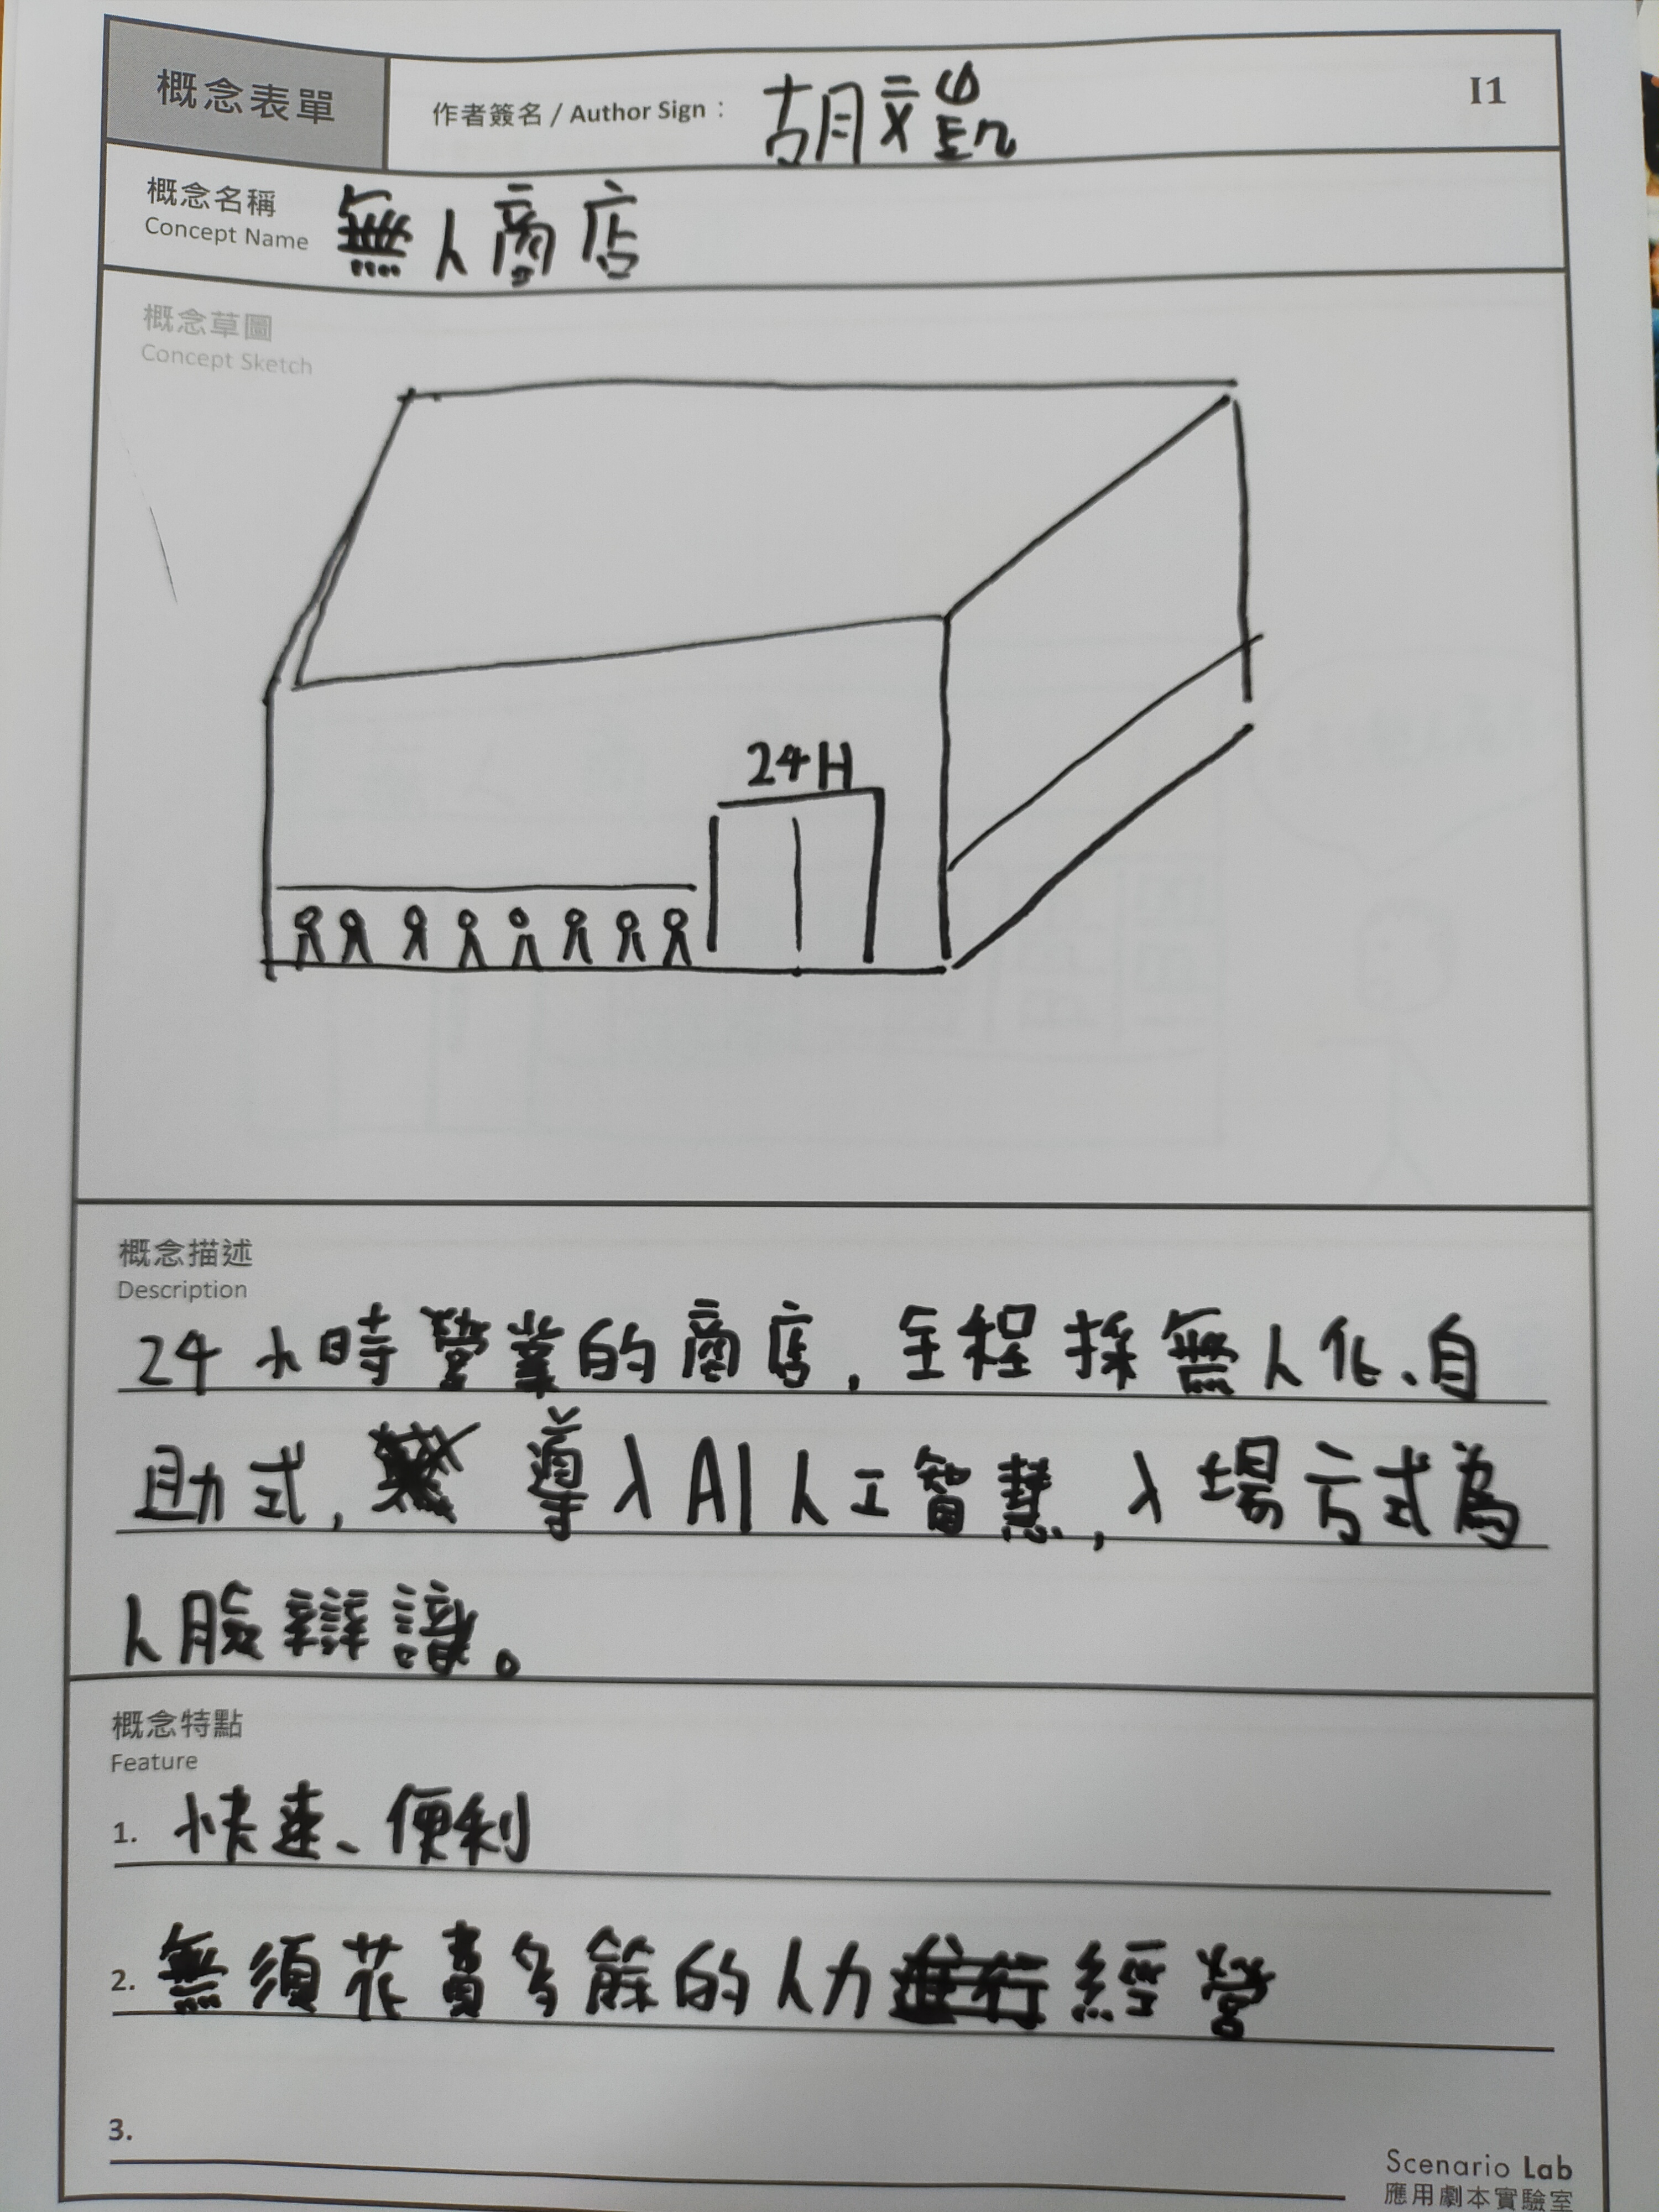 概念表單
作者簽名 / Author Sign： 胡文凱
I1
概念名稱
Concept Name
無人商店
概念草圖
Concept Sketch
24H
概念描述
Description
24小時營業的商店，全程採無人化、自
助式，導入AI人工智慧，入場方式為
人臉辯識。
概念特點
Feature
1. 快速、便利
2. 無須花費多餘的人力經營
3.
Scenario Lab
應用劇本實驗室